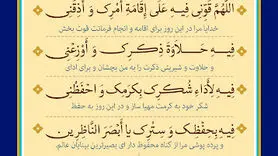 اللهُمَّ قَوِّنِی فِیهِ عَلَی إِقَامَةِ أَمْرِکَ وَ أَذِقْنِی
خدایا مرا در این روز برای اقامه و انجام فرمانت قوت بخش
فِیهِ حَلاوَةَ ذِکْرِکَ وَ أَوْزِعْنِی
و حلاوت و شیرینی ذکرت را به من بچشان و برای ادای
فِیهِ لِأَدَاءِ شُکْرِکَ بِکَرَمِکَ وَ احْفَظْنِی
شکر خود به کرمت مهیا ساز و در این روز به حفظ
فِیهِ بِحِفْظِکَ وَ سِتْرِکَ یَا أَبْصَرَ النَّاظِرِینَ
و پرده پوشی مرا از گناه محفوظ دار ای بصیرترین بینایان عالم.